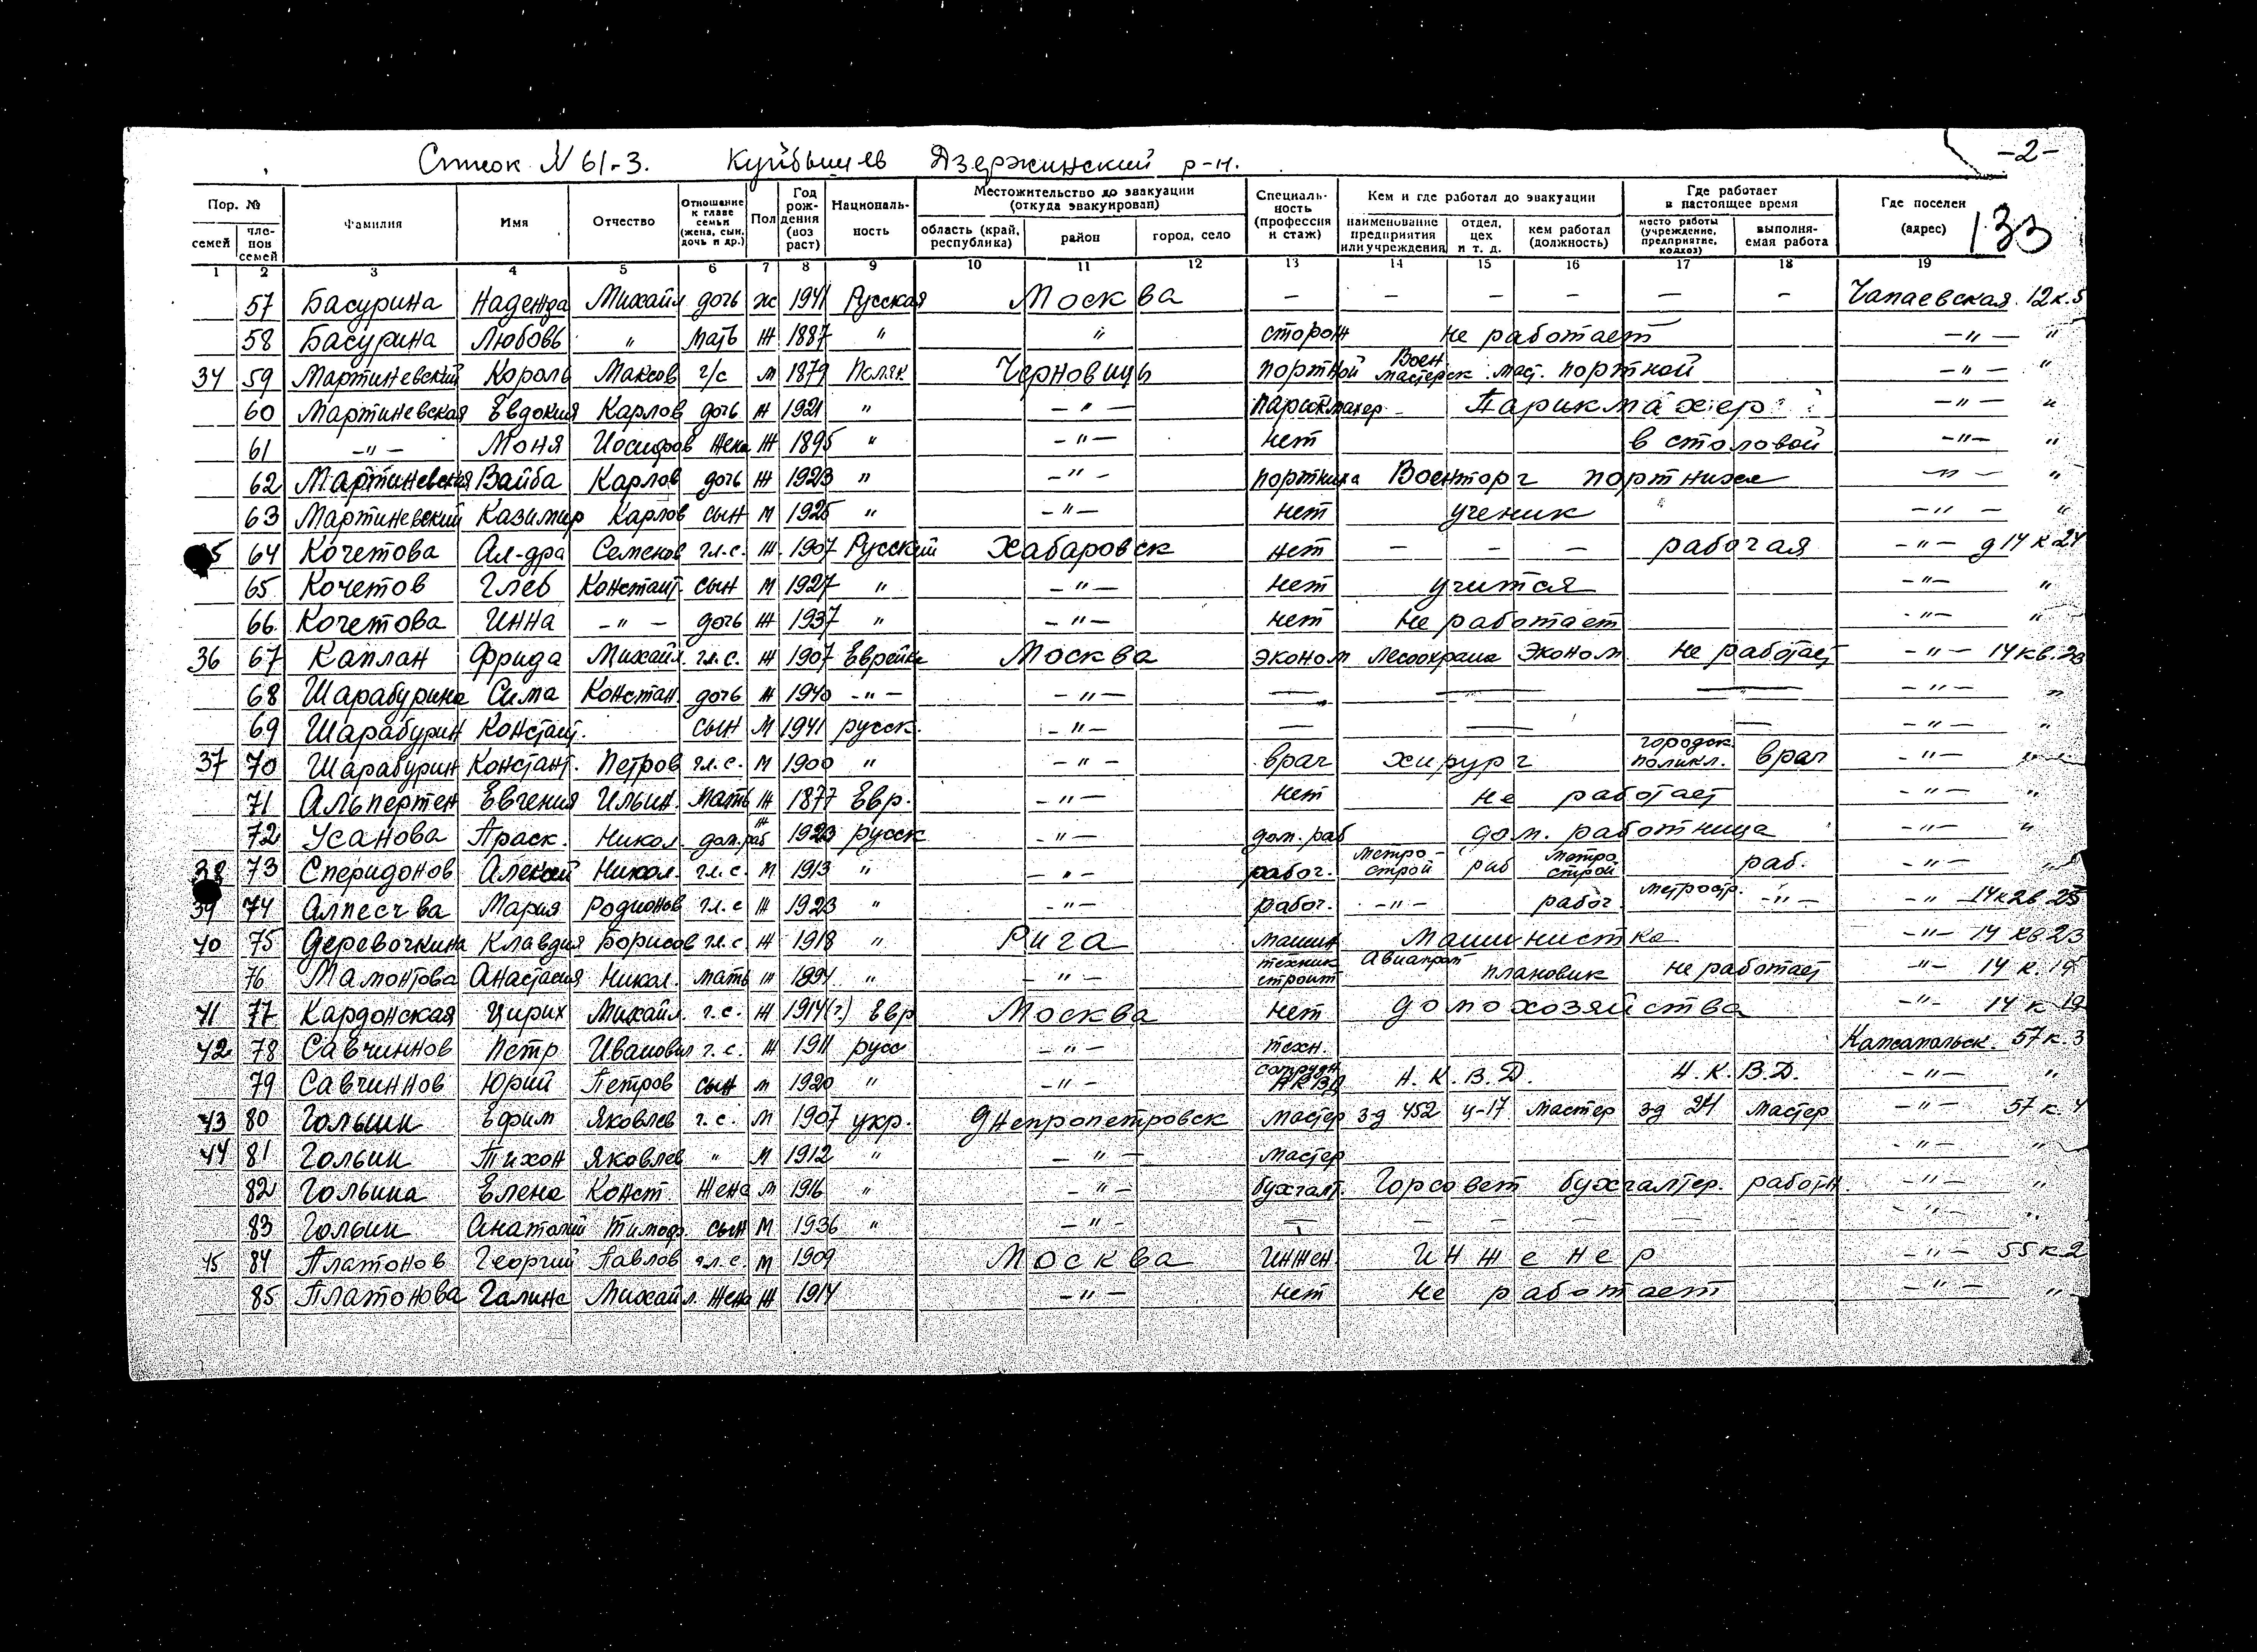 Список N 61-3. Куйбышев Дзержинский р-н. -2-
133
Пор. № Фамилия Имя Отчество Отношение к главе семьи (жена, сын, дочь и др.) Пол Год рождения (возраст) Националь-ность Местожительство до эвакуации (откуда эвакуирован) Специаль-ность (профессия и стаж) Кем и где работал до эвакуации Где работает в настоящее время Где поселен (адрес)
семей чле-нов семей область (край, республика) район город, село наименование предприятия или учреждения отдел, цех и т. д. кем работал (должность) место работы (учреждение, предприятие, колхоз) выполня-емая работа
1 2 3 4 5 6 7 8 9 10 11 12 13 14 15 16 17 18 19
57 Басурина Надежда Михайл дочь ж 1941 Русская Москва — — — — — - Чапаевская. 12 к. 5
58 Басурина Любовь " мать ж 1887 " " сторож не работает —"— "
34 59 Мартиневский Король Максов г/с м 1879 Поляк Черновицы портной Воен. мастерск. маст. портной —"— "
60 Мартиневская Евдокия Карлов дочь ж 1921 " —"— парикмахер Парикмахер —"— "
61 —"— Моня Иосифов жена ж 1895 " —"— нет в столовой —"— "
62 Мартиневская Вайба Карлов дочь ж 1923 " —"— портниха Военторг портниха —"— "
63 Мартиневский Казимир Карлов сын м 1925 " —"— нет ученик —"— "
64 Кочетова Ал-дра Семенов гл.с. ж. 1907 Русский Хабаровск нет — — — рабочая —"— д 14 к 24
65 Кочетов Глеб Констант. сын м 1927 " —"— нет учится —"— "
66. Кочетова Инна —"— дочь ж 1937 " —"— нет не работает —"— "
36 67 Каплан Фрида Михайл. гл.с. ж 1907 Еврейка Москва эконом Лесоохрана эконом не работает —"— 14 кв. 23
68 Шарабурина Сима Констан. дочь ж 1940 —"— —"— — — — —"— "
69 Шарабурин Констант. сын м 1941 русск. —"— — — — —"— "
37 70 Шарабурин Констант. Петров гл.с. м 1900 " —"— врач хирург городск. поликл. врач —"— "
71 Альпертен Евгения Ильин. мать ж 1877 Евр. —"— нет не работает —"— "
72 Усанова Праск. Никол. дом.раб ж 1923 русск —"— дом.раб дом. работница —"— "
38 73 Сперидонов Алексей Никол. гл.с. м 1913 " —"— рабоч. метро-строй раб метро строй раб. —"— "
39 74 Мария Родионов гл.с ж 1923 " —"— рабоч. —"— рабоч метростр. —"— —"—
40 75 Деревочкина Клавдия Борисов гл.с ж 1918 " Рига машин машинистка —"— 14 кв 23
76 Мамонтова Анастасия Никол. мать ж " —"— техник строит плановик не работает —"— 14 к. 15
41 77 Кардонская Цирих Михайл. г.с. ж 1914(г.) Евр Москва нет домохозяйства —"— 14 к 19
42 78 Савчиннов Петр Иванович г.с. ж 1911 русс —"— техн. 57 к. 3
79 Савчиннов Юрий Петров сын м 1920 " —"— сотрудн. НКВД Н.К.В.Д. Н.К.В.Д. —"— "
43 80 Гольцин Ефим Яковлев г.с. м 1907 укр. Днепропетровск мастер з-д 452 ц-17 мастер з-д 24 мастер —"— 57 к. 4
44 81 Гольцин Тихон Яковлев " м 1912 " —"— мастер —"— "
82 Гольцина Елена Конст жена м 1916 " —"— бухгалт. Горсовет бухгалтер. работн. —"— "
83 Гольцин Анатолий Тимоф. сын м 1936 " —"— — — — — — — —"— "
45 84 Платонов Георгий Павлов гл.с. м 1909 Москва инжен. инженер —"— 55 к 2
85 Платонова Галина Михайл. жена ж 1914 —"— нет не работает —"— "